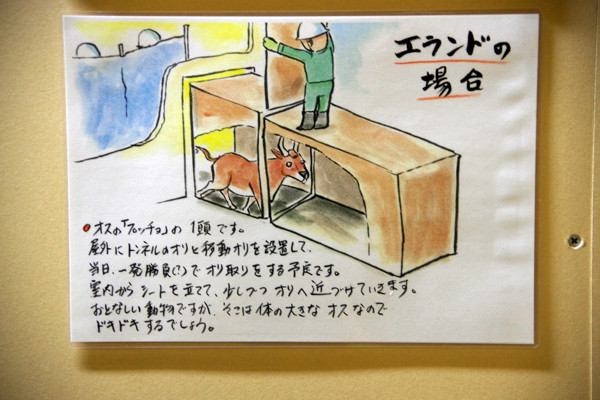 エランドの
場合
オスの「プッチョ」の1頭です。
屋外にトンネルのオリと移動オリを設置して、
当日、一発勝負(?)でオリ取りをする予定です。
室内からシートを立てて、少しづつオリへ近づけていきます。
おとなしい動物ですが、そこは体の大きなオスなので
ドキドキするでしょう。